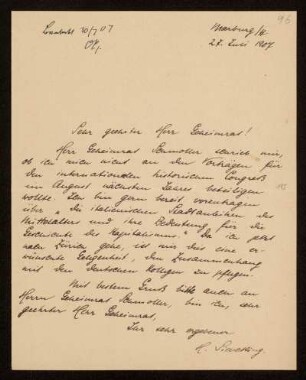 96
Marburg/H
27. Juni 1907
Sehr geehrter Herr Geheimrat!
Herr Geheimrat Schmoller schrieb mir,
ob ich mich nicht an den Vorträgen für
den internationalen historischen Congreß
im August nächsten Jahres beteiligen
wollte. Ich bin gern bereit, vorzutragen
über „Die italienischen Stadtanleihen des
Mittelalters und ihre Bedeutung für die
Geschichte des Kapitalismus." Da ich jetzt
nach Zürich gehe, ist mir dies eine er-
wünschte Gelegenheit, den Zusammenhang
mit den Deutschen Kollegen zu pflegen.
Mit bestem Gruß bitte auch an
Herrn Geheimrat Schmoller, bin ich, sehr
geehrter Herr Geheimrat,
Ihr sehr ergebener
H. Sieveking